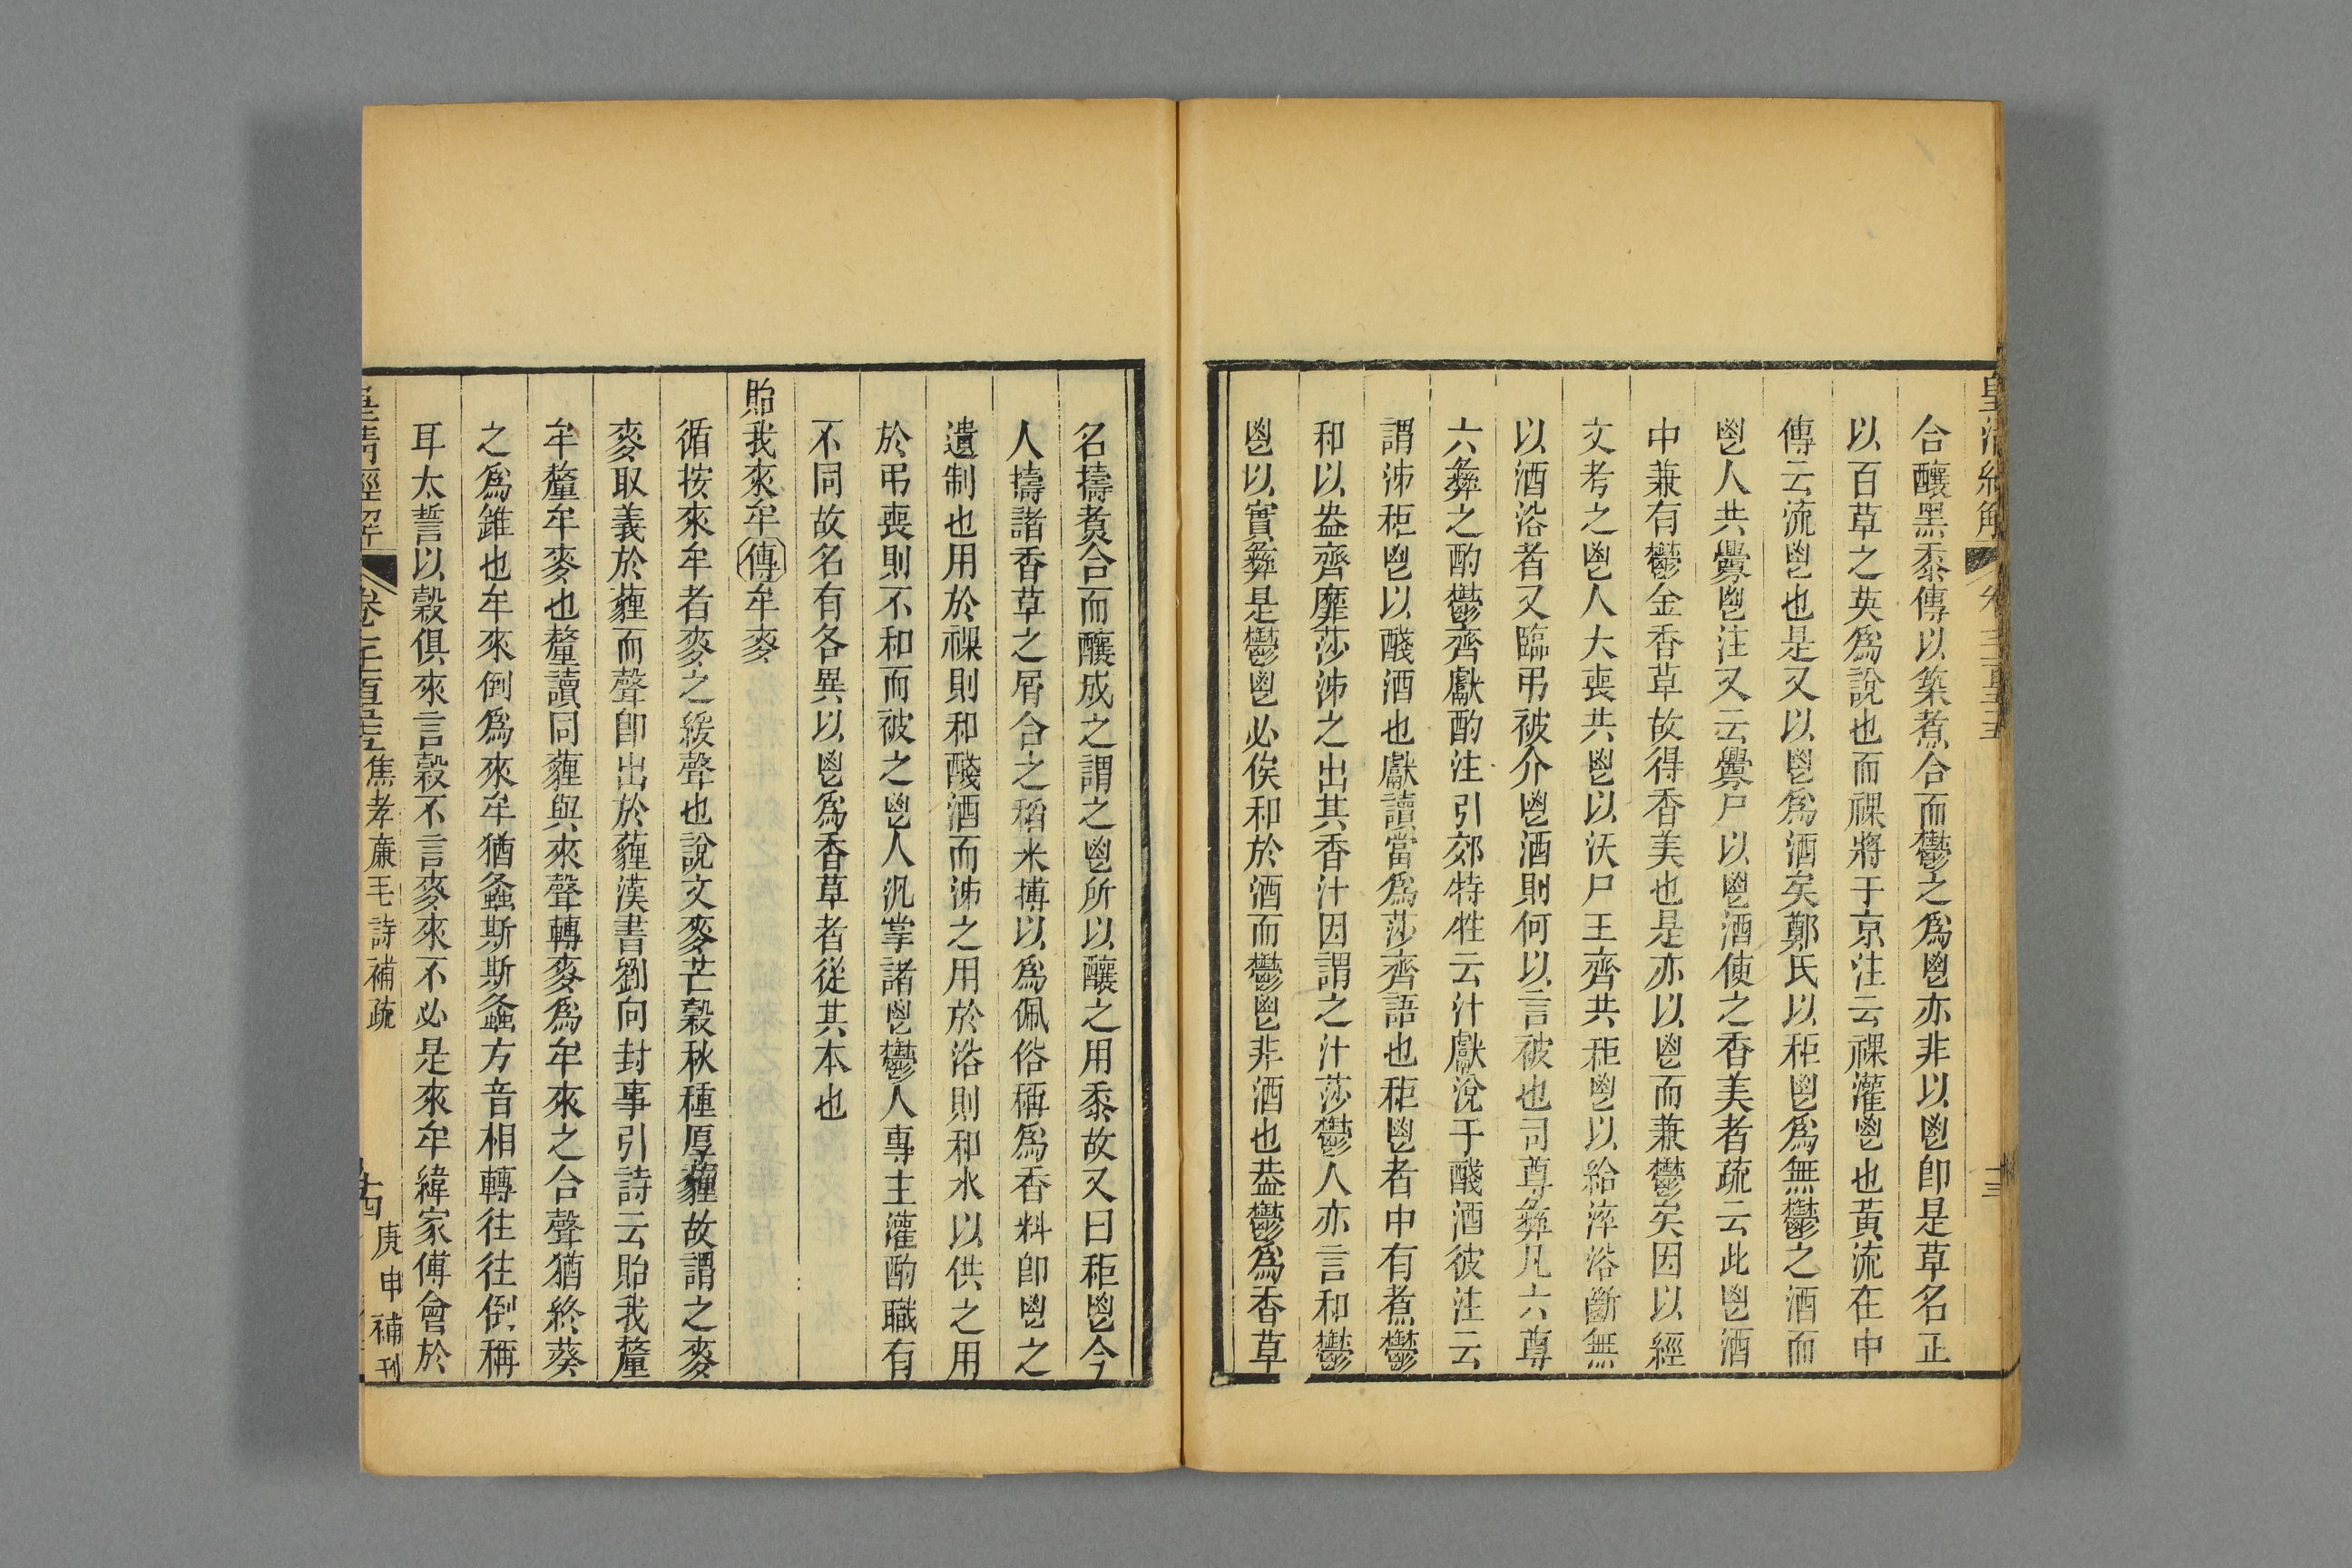 合釀黑黍傳以築煮合而鬱之爲鬯亦非以鬯卽是草名正
以百草之英爲說也而祼將于京注云祼灌鬯也黃流在中
傳云流鬯也是又以鬯爲酒矣鄭氏以秬鬯爲無鬱之酒而
鬯人共釁鬯注又云釁尸以鬯酒使之香美者疏云此鬯酒
中兼有鬱金香草故得香美也是亦以鬯而兼鬱矣因以經
文考之鬯人大喪共鬯以沃尸王齊共秬鬯以給淬浴斷無
以酒浴者又臨弔被介鬯酒則何以言被也司尊彝凡六尊
六彝之酌鬱齊獻酌注引郊特牲云汁獻涗于醆酒彼注云
謂泲秬鬯以醆酒也獻讀當爲莎齊語也秬鬯者中有煮鬱
和以盎齊摩莎泲之出其香汁因謂之汁莎鬱人亦言和鬱
鬯以實彝是鬱鬯必俟和於酒而鬱鬯非酒也葢鬱爲香草
名擣煑合而釀成之謂之鬯所以釀之用黍故又曰秬鬯今
人擣諸香草之屑合之稻米摶以爲佩俗稱爲香料卽鬯之
遺制也用於祼則和醆酒而泲之用於浴則和水以供之用
於弔喪則不和而被之鬯人汎掌諸鬯鬱人專主灌酌職有
不同故名有各異以鬯爲香草者從其本也
貽我來牟傳牟麥
循按來牟者麥之緩聲也說文麥芒穀秋種厚薶故謂之麥
麥取義於薶而聲卽出於薶漢書劉向封事引詩云貽我釐
牟釐牟麥也釐讀同薶與來聲轉麥爲牟來之合聲猶終葵
之爲錐也牟來倒爲來牟猶螽斯斯螽方音相轉往往倒稱
耳太誓以穀俱來言穀不言麥來不必是來牟緯家傅會於
皇清經解 卷 焦孝廉毛詩補疏 十四 庚申補刊